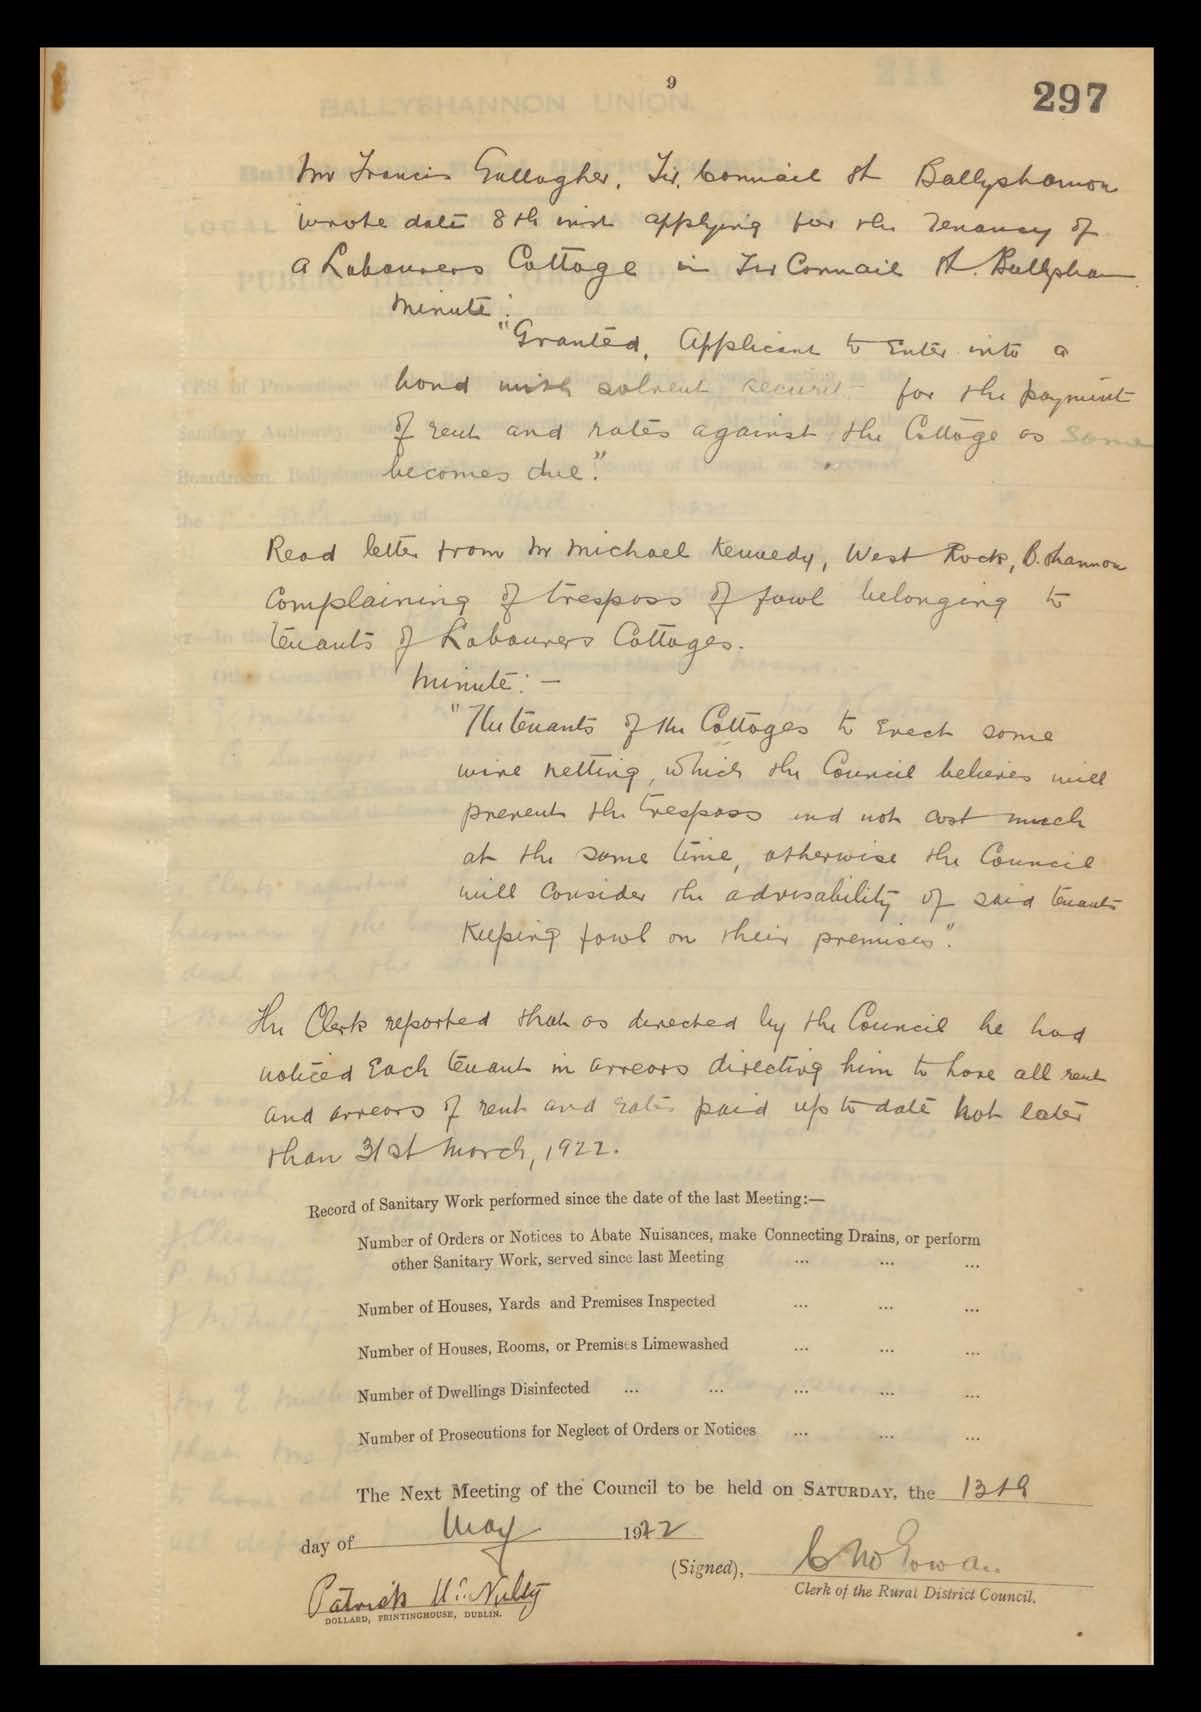 9
297
Mr Francis Gallagher, Tir Connail St Ballyshannon
wrote date 8th inst applying for the Tenancy of
a Labourers Cottage in Tir Connail St. Ballyshan
Minute:
"Granted, Applicant to Enter into a
bond with solvent securit for the payment
of rent and rates against the Cottage as same
becomes due."
Read letter from Mr Michael Kennedy, West Rock, B. Shannon
Complaining of trespass of fowl belonging to
tenants of Labourers Cottages.
Minute: —
"The tenants of the Cottages to Erect some
wire netting, which the Council believes will
prevent the trespass and not cost much
at the same time, otherwise the Council
will Consider the advisability of said tenants
Keeping fowl on their premises".
The Clerk reported that as directed by the Council he had
noticed Each tenant in arrears directing him to have all rent
and arrears of rent and rates paid up to date not later
than 31st March, 1922.
Record of Sanitary Work performed since the date of the last Meeting:—
Number of Orders or Notices to Abate Nuisances, make Connecting Drains, or perform
other Sanitary Work, served since last Meeting ... ... ...
Number of Houses, Yards and Premises Inspected ... ... ...
Number of Houses, Rooms, or Premises Limewashed ... ... ...
Number of Dwellings Disinfected ... ... ... ... ...
Number of Prosecutions for Neglect of Orders or Notices ... ... ...
The Next Meeting of the Council to be held on SATURDAY, the 13th
day of May 1922
(Signed), C McGowan
Clerk of the Rural District Council.
Patrick McNulty
DOLLARD, PRINTINGHOUSE, DUBLIN.